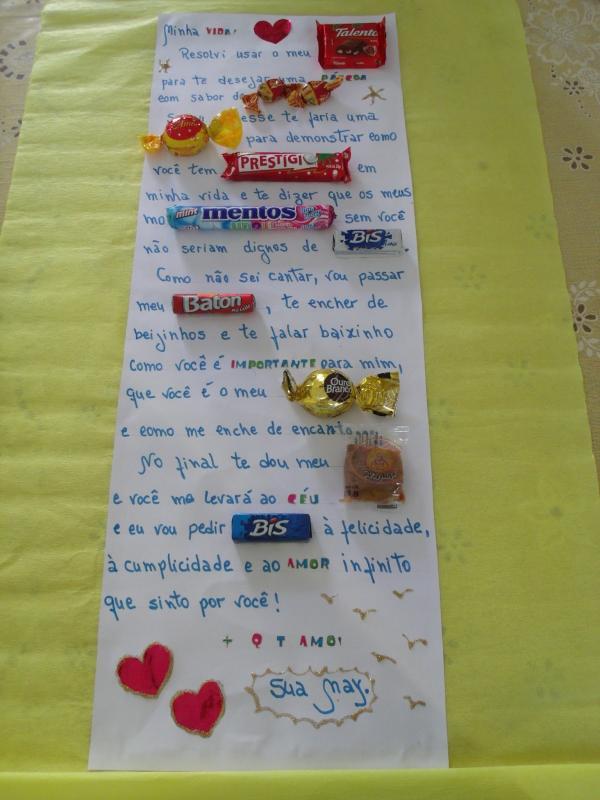 Minha VIDA!
Resolvi usar o meu Talento
para te desejar uma PÁSCOA
com sabor de
esse te faria uma
para demonstrar como
você tem PRESTÍGIO em
minha vida e te dizer que os meus
mo mini mentos sem você
não seriam dignos de BIS.
Como não sei cantar, vou passar
meu Baton, te encher de
beijinhos e te falar baixinho
como você é IMPORTANTE para mim,
que você é o meu Ouro Branco
e como me enche de encanto.
No final te dou meu
e você me levará ao CÉU
e eu vou pedir BIS à felicidade,
à cumplicidade e ao AMOR infinito
que sinto por você!
+ Q T AMO!
Sua May.